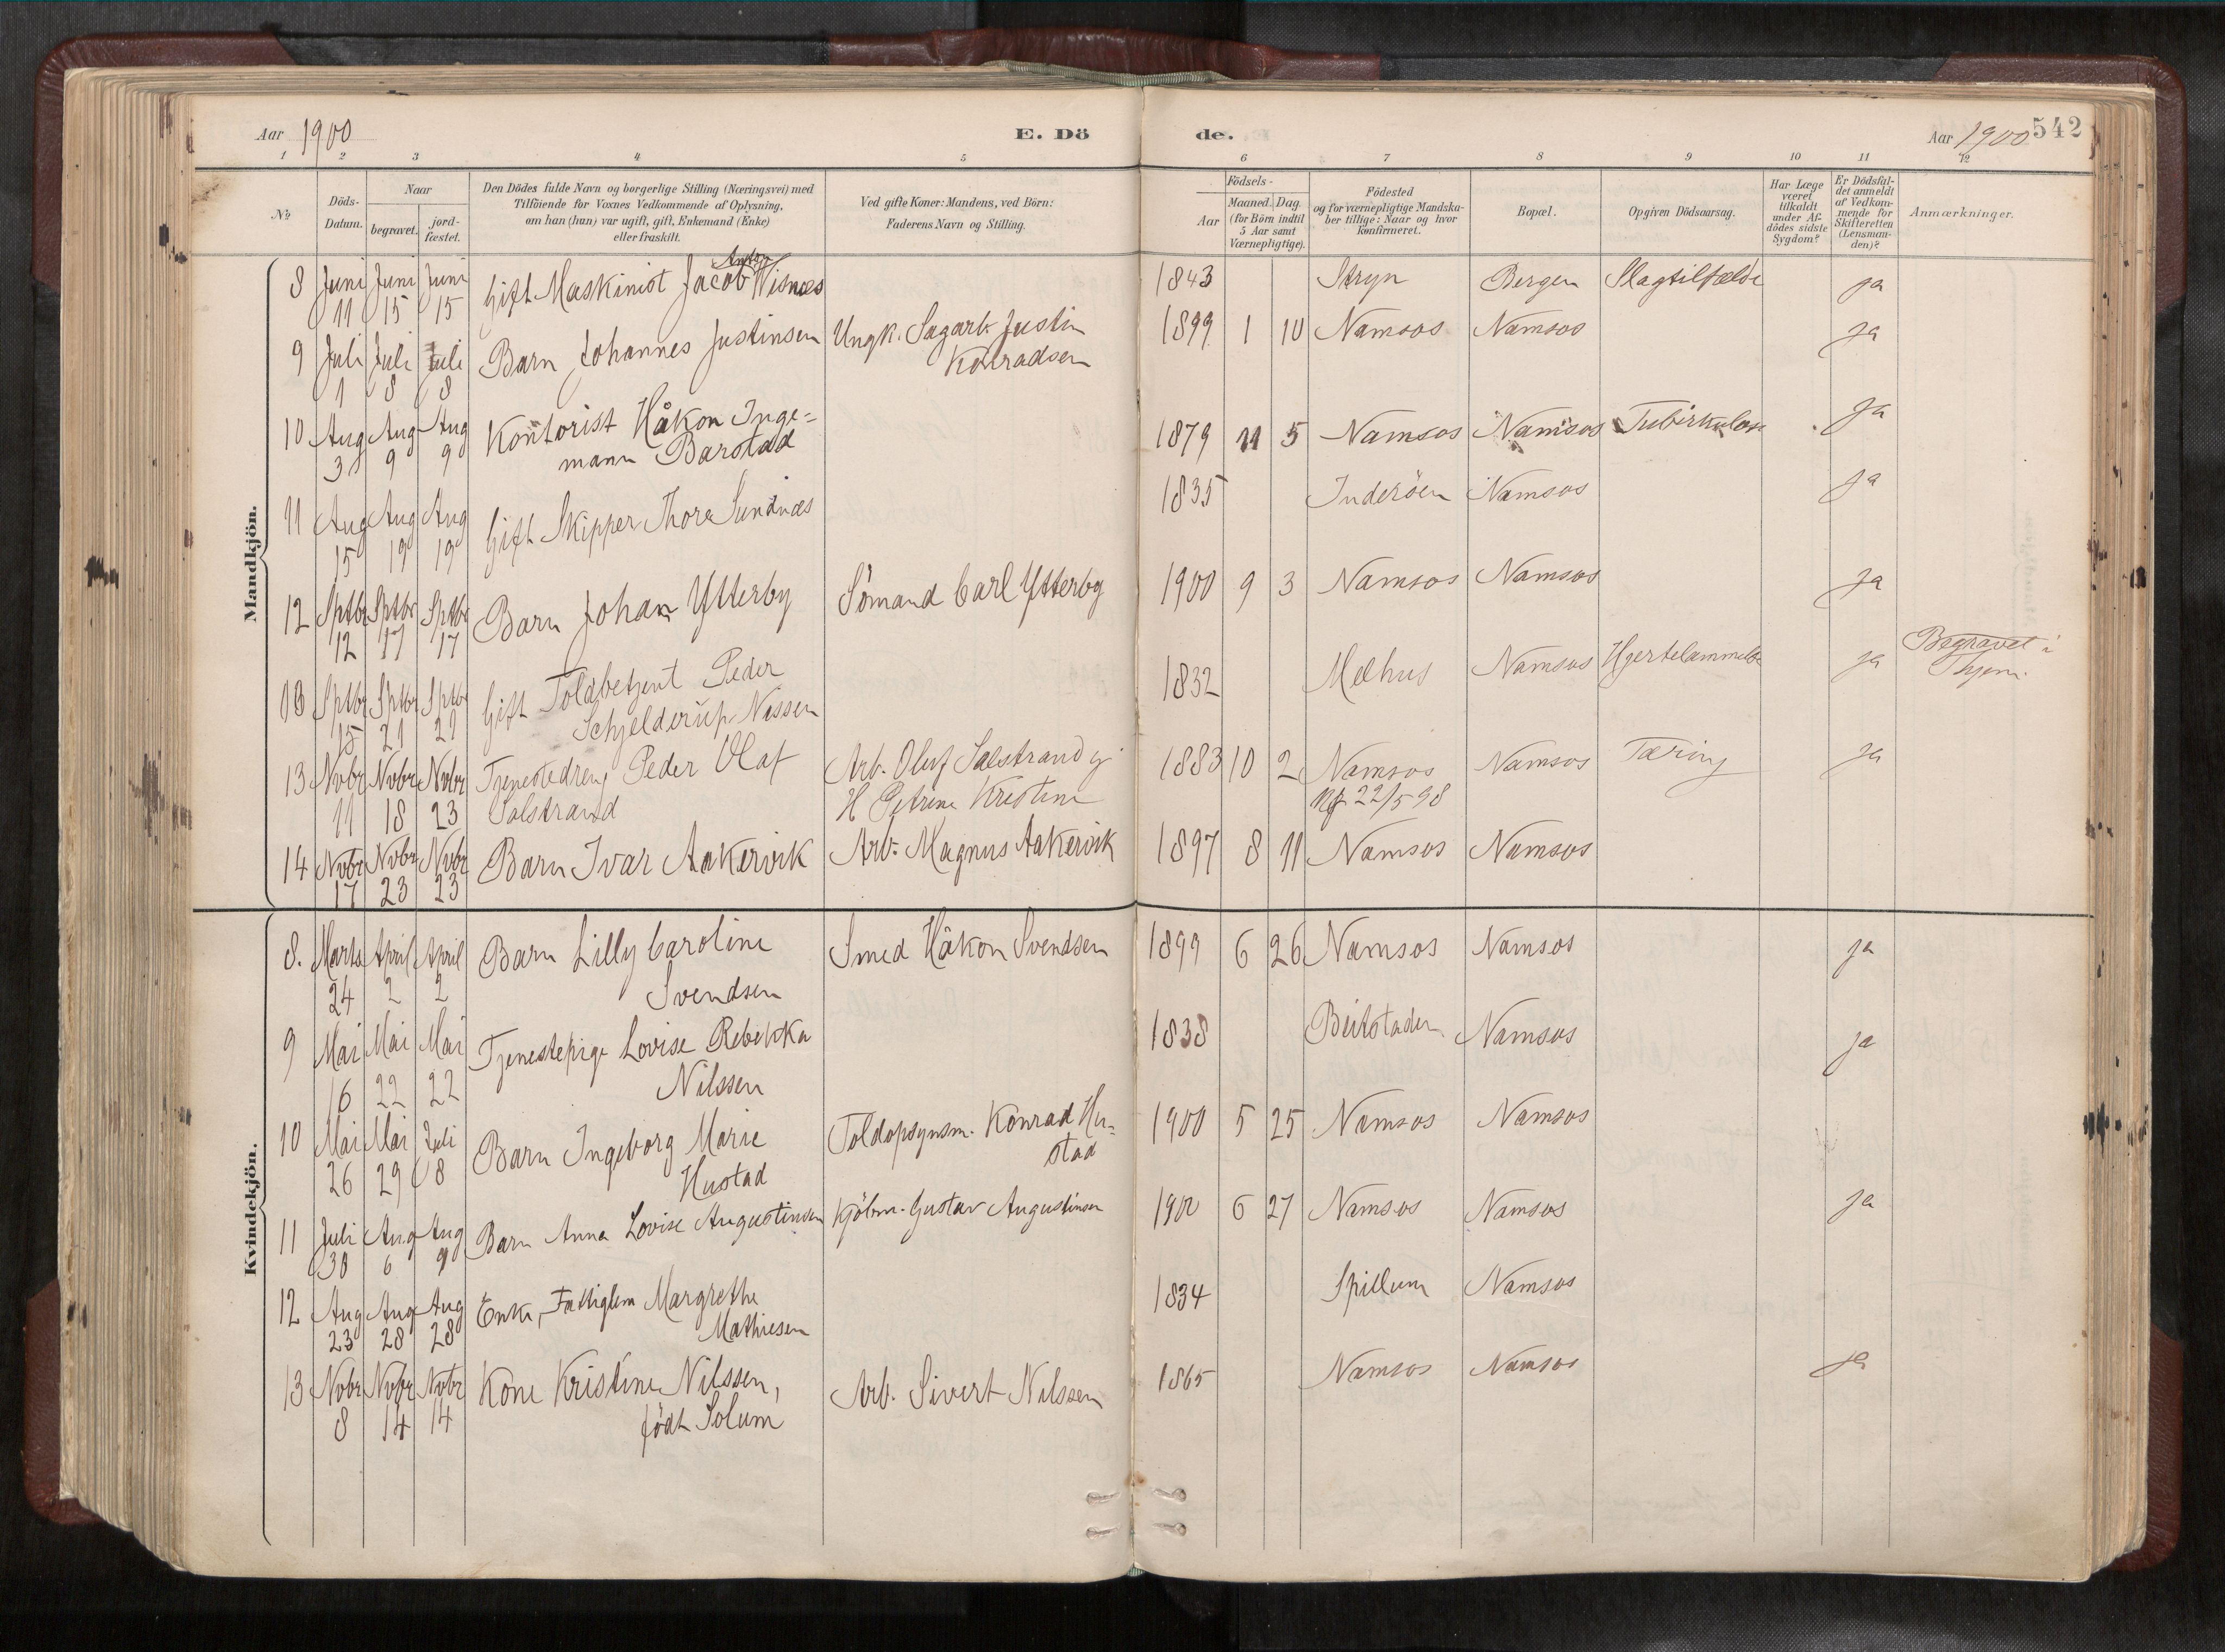 Aar 1900
E. Dö
de.
Aar 1900 542
1 2 3 4 5 6 7 8 9 10 11 12
№
Döds-Datum.
Naar
begravet.
jord-fæstet.
Den Dödes fulde Navn og borgerlige Stilling (Næringsvei) med
Tilföiende for Voxnes Vedkommende af Oplysning,
om han (hun) var ugift, gift, Enkemand (Enke)
eller fraskilt.
Ved gifte Koner: Mandens, ved Börn:
Faderens Navn og Stilling.
Födsels-
Aar
Maaned. Dag.
(for Börn indtil
5 Aar samt
Værnepligtige).
Födested
og for værnepligtige Mandska-
ber tillige: Naar og hvor
konfirmeret.
Bopæl.
Opgiven Dödsaarsag.
Har Læge
været
tilkaldt
under Af-
dödes sidste
Sygdom?
Er Dödsfal-
det anmeldt
af Vedkom-
mende for
Skifteretten
(Lensman-
den)?
Anmærkninger.
Mandkjön.
8 Juni Juni Juni Gift Maskinist Jacob Anton Wisnæs 1843 Stryn Bergen Slagtilfælde ja
11 15 15
9 Juli Juli Juli Barn Johannes Justinsen Ungk. Sagarb. Justin 1899 1 10 Namsos Namsos ja
1 8 8 Konradsen
10 Aug Aug Aug Kontorist Håkon Inge- 1879 11 5 Namsos Namsos Tubirkulose ja
3 9 9 mann Barstad
11 Aug Aug Aug Gift Skipper Thore Sundnæs 1835 Inderöen Namsos ja
15 19 19
12 Sptbr Sptbr Sptbr Barn Johan Ytterby Sömand Carl Ytterby 1900 9 3 Namsos Namsos ja
12 17 17
13 Sptbr Sptbr Sptbr Gift Toldbetjent Peder 1832 Melhus Namsos Hjertelammelse ja Begravet i
15 21 21 Schjelderup Nissen Thjem.
13 Nvbr Nvbr Nvbr Tjenestedreng Peder Olaf Arb. Oluf Salstrand og 1883 10 2 Namsos Namsos Tæring ja
11 18 23 Salstrand H Petrine Kristine 22/5 98
14 Nvbr Nvbr Nvbr Barn Ivar Aakervik Arb. Magnus Aakervik 1897 8 11 Namsos Namsos
17 23 23
Kvindekjön.
8. Marts April April Barn Lilly Caroline Smed Håkon Svendsen 1899 6 26 Namsos Namsos ja
24 2 2 Svendsen
9 Mai Mai Mai Tjenestepige Lovise Rebekka 1838 Beitstaden Namsos ja
16 22 22 Nilssen
10 Mai Mai Juli Barn Ingeborg Marie Toldopsynsm. Konrad Hu- 1900 5 25 Namsos Namsos
26 29 8 Hustad stad
11 Juli Aug Aug Barn Anna Lovise Augustinsen Kjöbm. Gustav Augustinsen 1900 6 27 Namsos Namsos ja
30 6 9
12 Aug Aug Aug Enke, Fattiglem Margrethe 1834 Spillum Namsos
23 28 28 Mathiesen
13 Nvbr Nvbr Nvbr Kone Kristine Nilssen, Arb. Sivert Nilssen 1865 Namsos Namsos ja
8 14 14 födt Solum